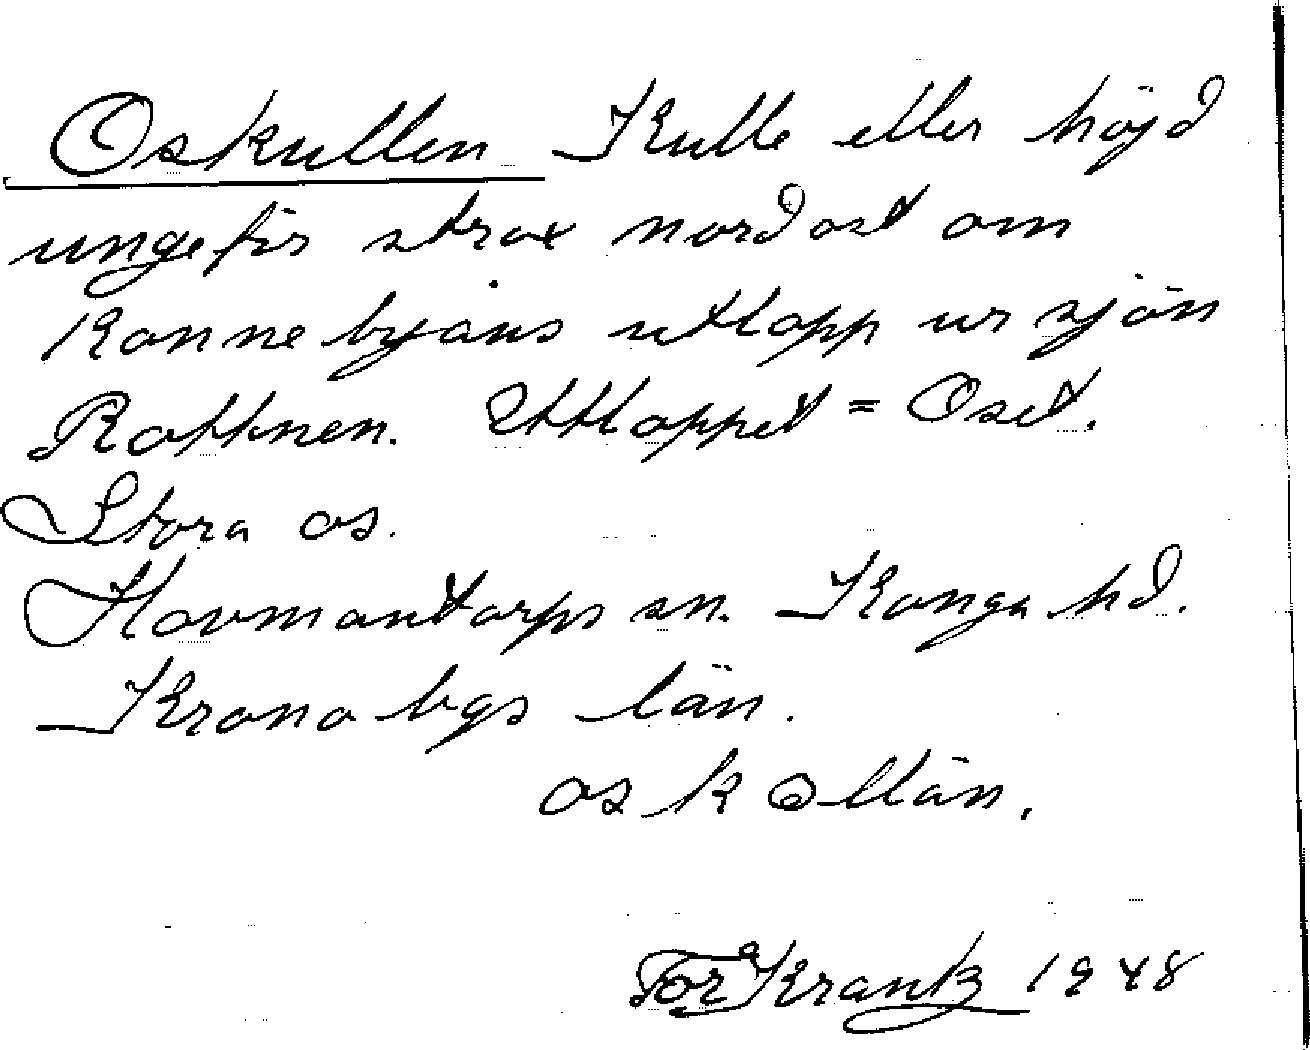 Oskullen Kulle eller höjd
ungefär strax nordost om
Ronnebyåns utlopp ur sjön
Rottnen. Uttloppet = Oset.
Stora os.
Hovmantorps sn. Konga hd.
Kronobgs län.
Tor Krantz 1948